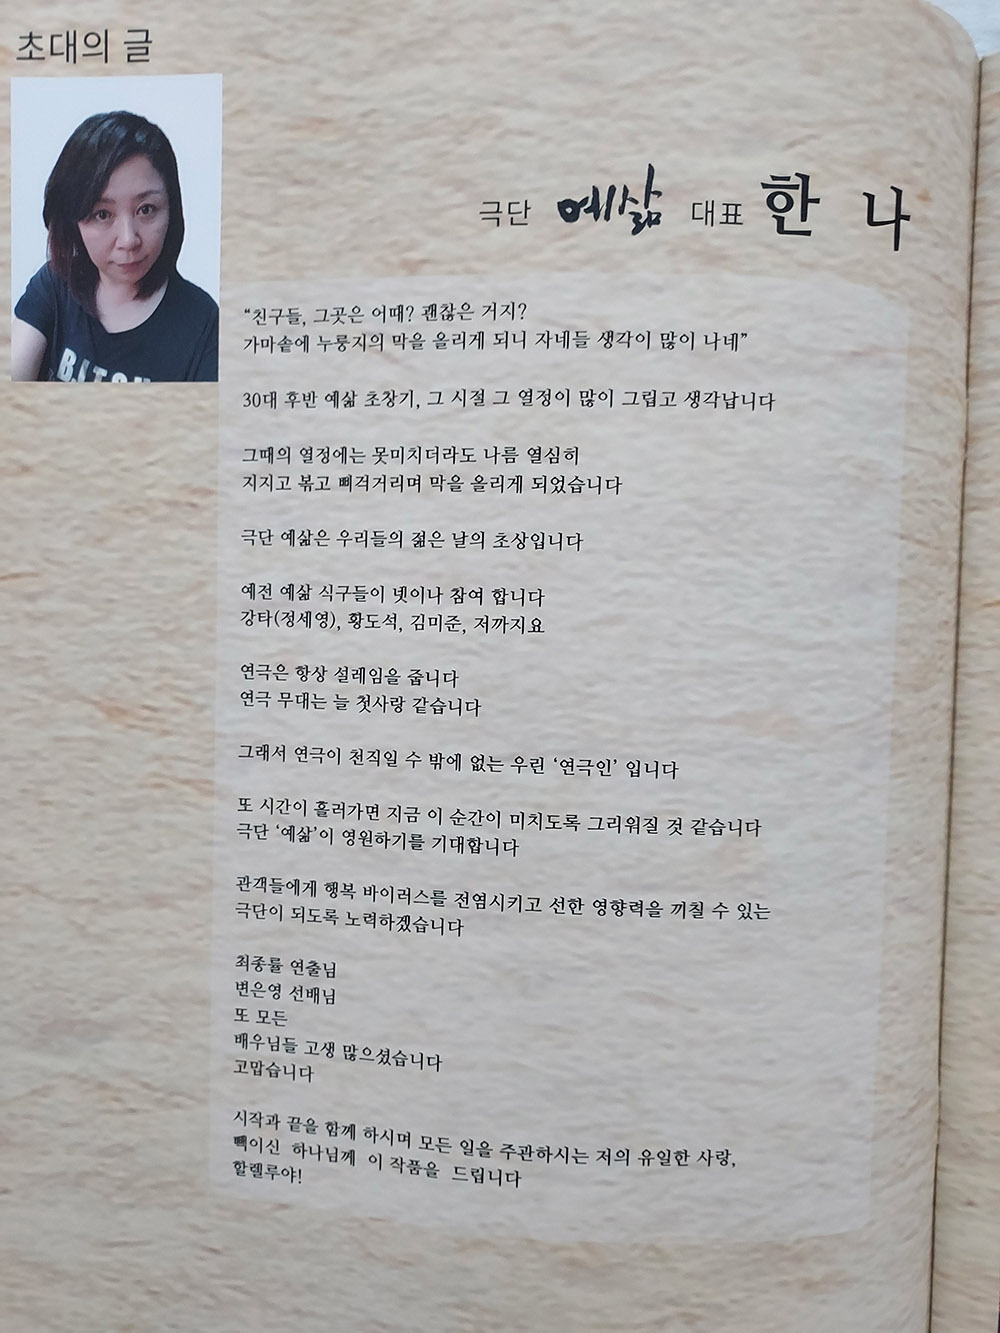 초대의 글
극단 예삶 대표 한 나
“친구들, 그곳은 어때? 괜찮은 거지?
가마솥에 누룽지의 막을 올리게 되니 자네들 생각이 많이 나네”
30대 후반 예삶 초창기, 그 시절 그 열정이 많이 그립고 생각납니다
그때의 열정에는 못미치더라도 나름 열심히
지지고 볶고 삐걱거리며 막을 올리게 되었습니다
극단 예삶은 우리들의 젊은 날의 초상입니다
예전 예삶 식구들이 넷이나 참여 합니다
강타(정세영), 황도석, 김미준, 저까지요
연극은 항상 설레임을 줍니다
연극 무대는 늘 첫사랑 같습니다
그래서 연극이 천직일 수 밖에 없는 우린 ‘연극인’ 입니다
또 시간이 흘러가면 지금 이 순간이 미치도록 그리워질 것 같습니다
극단 ‘예삶’이 영원하기를 기대합니다
관객들에게 행복 바이러스를 전염시키고 선한 영향력을 끼칠 수 있는
극단이 되도록 노력하겠습니다
최종률 연출님
변은영 선배님
또 모든
배우님들 고생 많으셨습니다
고맙습니다
시작과 끝을 함께 하시며 모든 일을 주관하시는 저의 유일한 사랑,
빽이신 하나님께 이 작품을 드립니다
할렐루야!